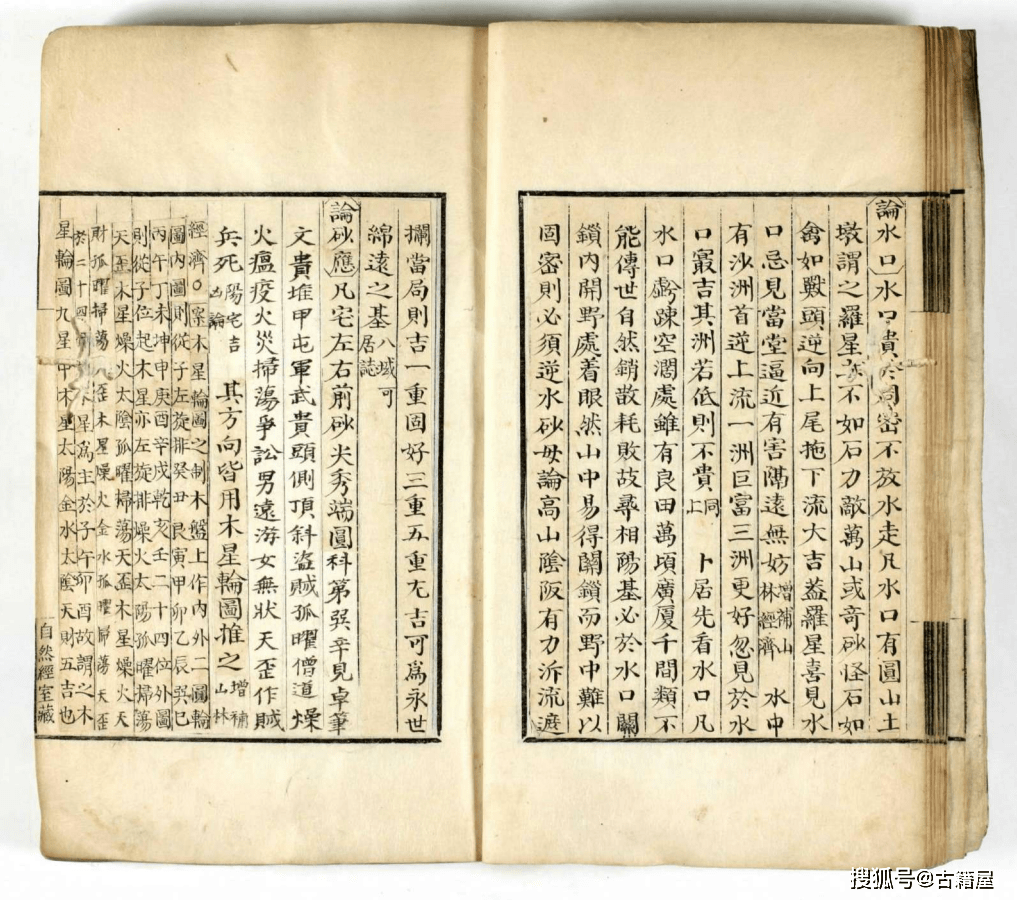 論水口水口貴於周密不放水走凡水口有圓山土
墩謂之羅星不如石力敵萬山或奇砂怪石如
禽如獸頭逆向上尾拖下流大吉葢羅星喜見水
口忌見當堂逼近有害隔遠無妨增補山林經濟 水中
有沙洲首逆上流一洲巨富三洲更好忽見於水
口㝡吉其洲若低則不貴同上 卜居先看水口凡
水口虧疎空濶處雖有良田萬頃廣厦千間類不
能傳世自然銷散耗敗故尋相陽基必於水口關
鎖內開野處着眼然山中易得關鎖而野中難以
固密則必須逆水砂毋論高山陰阪有力泝流遮
攔當局則吉一重固好三重五重尤吉可爲永世
綿遠之基八域可居誌
論砂應凡宅左右前砂尖秀端圓科第巽辛見卓筆
文貴堆甲屯軍武貴頭側頂斜盜賊孤曜僧道燥
火瘟疫火災掃蕩爭訟男遠游女無狀天歪作賊
兵死陽宅吉凶論 其方向皆用木星輪圖推之增補山林
經濟○案木星輪圖之制木盤上作內外二圓輪
圖內圖則從子左旋排癸丑艮寅甲卯乙辰巽巳
丙午丁未坤申庚酉辛戌乾亥壬二十四位外圖
則從子位起木星亦左旋排燥火太陽孤曜掃蕩
天歪木星燥火太陰孤曜掃蕩天歪木星燥火天
財孤曜掃蕩天歪木星燥火金水孤曜掃蕩天歪
於二十四木星爲主於子午卯酉故謂之木
星輪圖九星中木星太陽金水太陰天財五吉也
自然經室藏
搜狐号@古籍屋